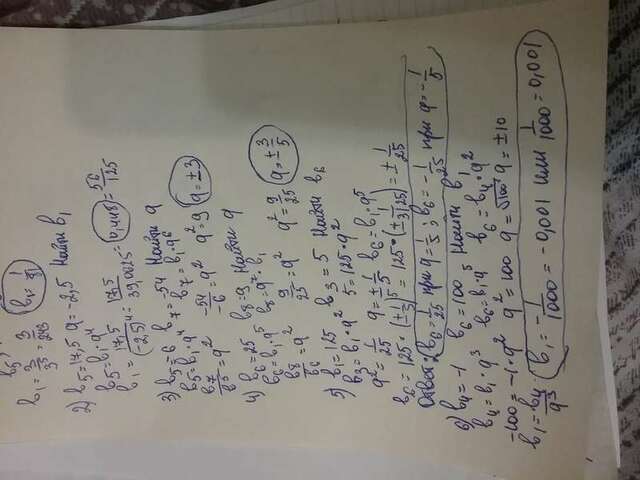 b₁ = 3/3⁵ = 3/243 b₁ = 1/81
2) b₅ = 17,5 q = -2,5 Найти b₁
b₅ = b₁·q⁴
b₁ = 17,5/(-2,5)⁴ = 17,5/39,0625 = 0,448 = 56/125
3) b₅ = -6 b₇ = -54 Найти q
b₅ = b₁·q⁴ b₇ = b₁·q⁶
b₇/b₅ = q² -54/-6 = q² q² = 9 q = ±3
4) b₆ = 25 b₈ = 9 Найти q
b₆ = b₁·q⁵ b₈ = q⁷·b₁
b₈/b₆ = q² 9/25 = q² q² = 9/25 q = ±3/5
5) b₁ = 125 b₃ = 5 Найти b₆
b₃ = b₁·q² 5 = 125·q²
q² = 1/25 q = ±1/5 b₆ = b₁·q⁵
b₆ = 125·(±1/5)⁵ = 125·(±1/3125) = ±1/25
Ответ: b₆ = 1/25 при q = 1/5; b₆ = -1/25 при q = -1/5
6) b₄ = -1 b₆ = -100 Найти b₁
b₄ = b₁·q³ b₆ = b₁·q⁵ b₆ = b₄·q²
-100 = -1·q² q² = 100 q = √100 q = ±10
b₁ = b₄/q³ b₁ = -1/1000 = -0,001 или 1/1000 = 0,001